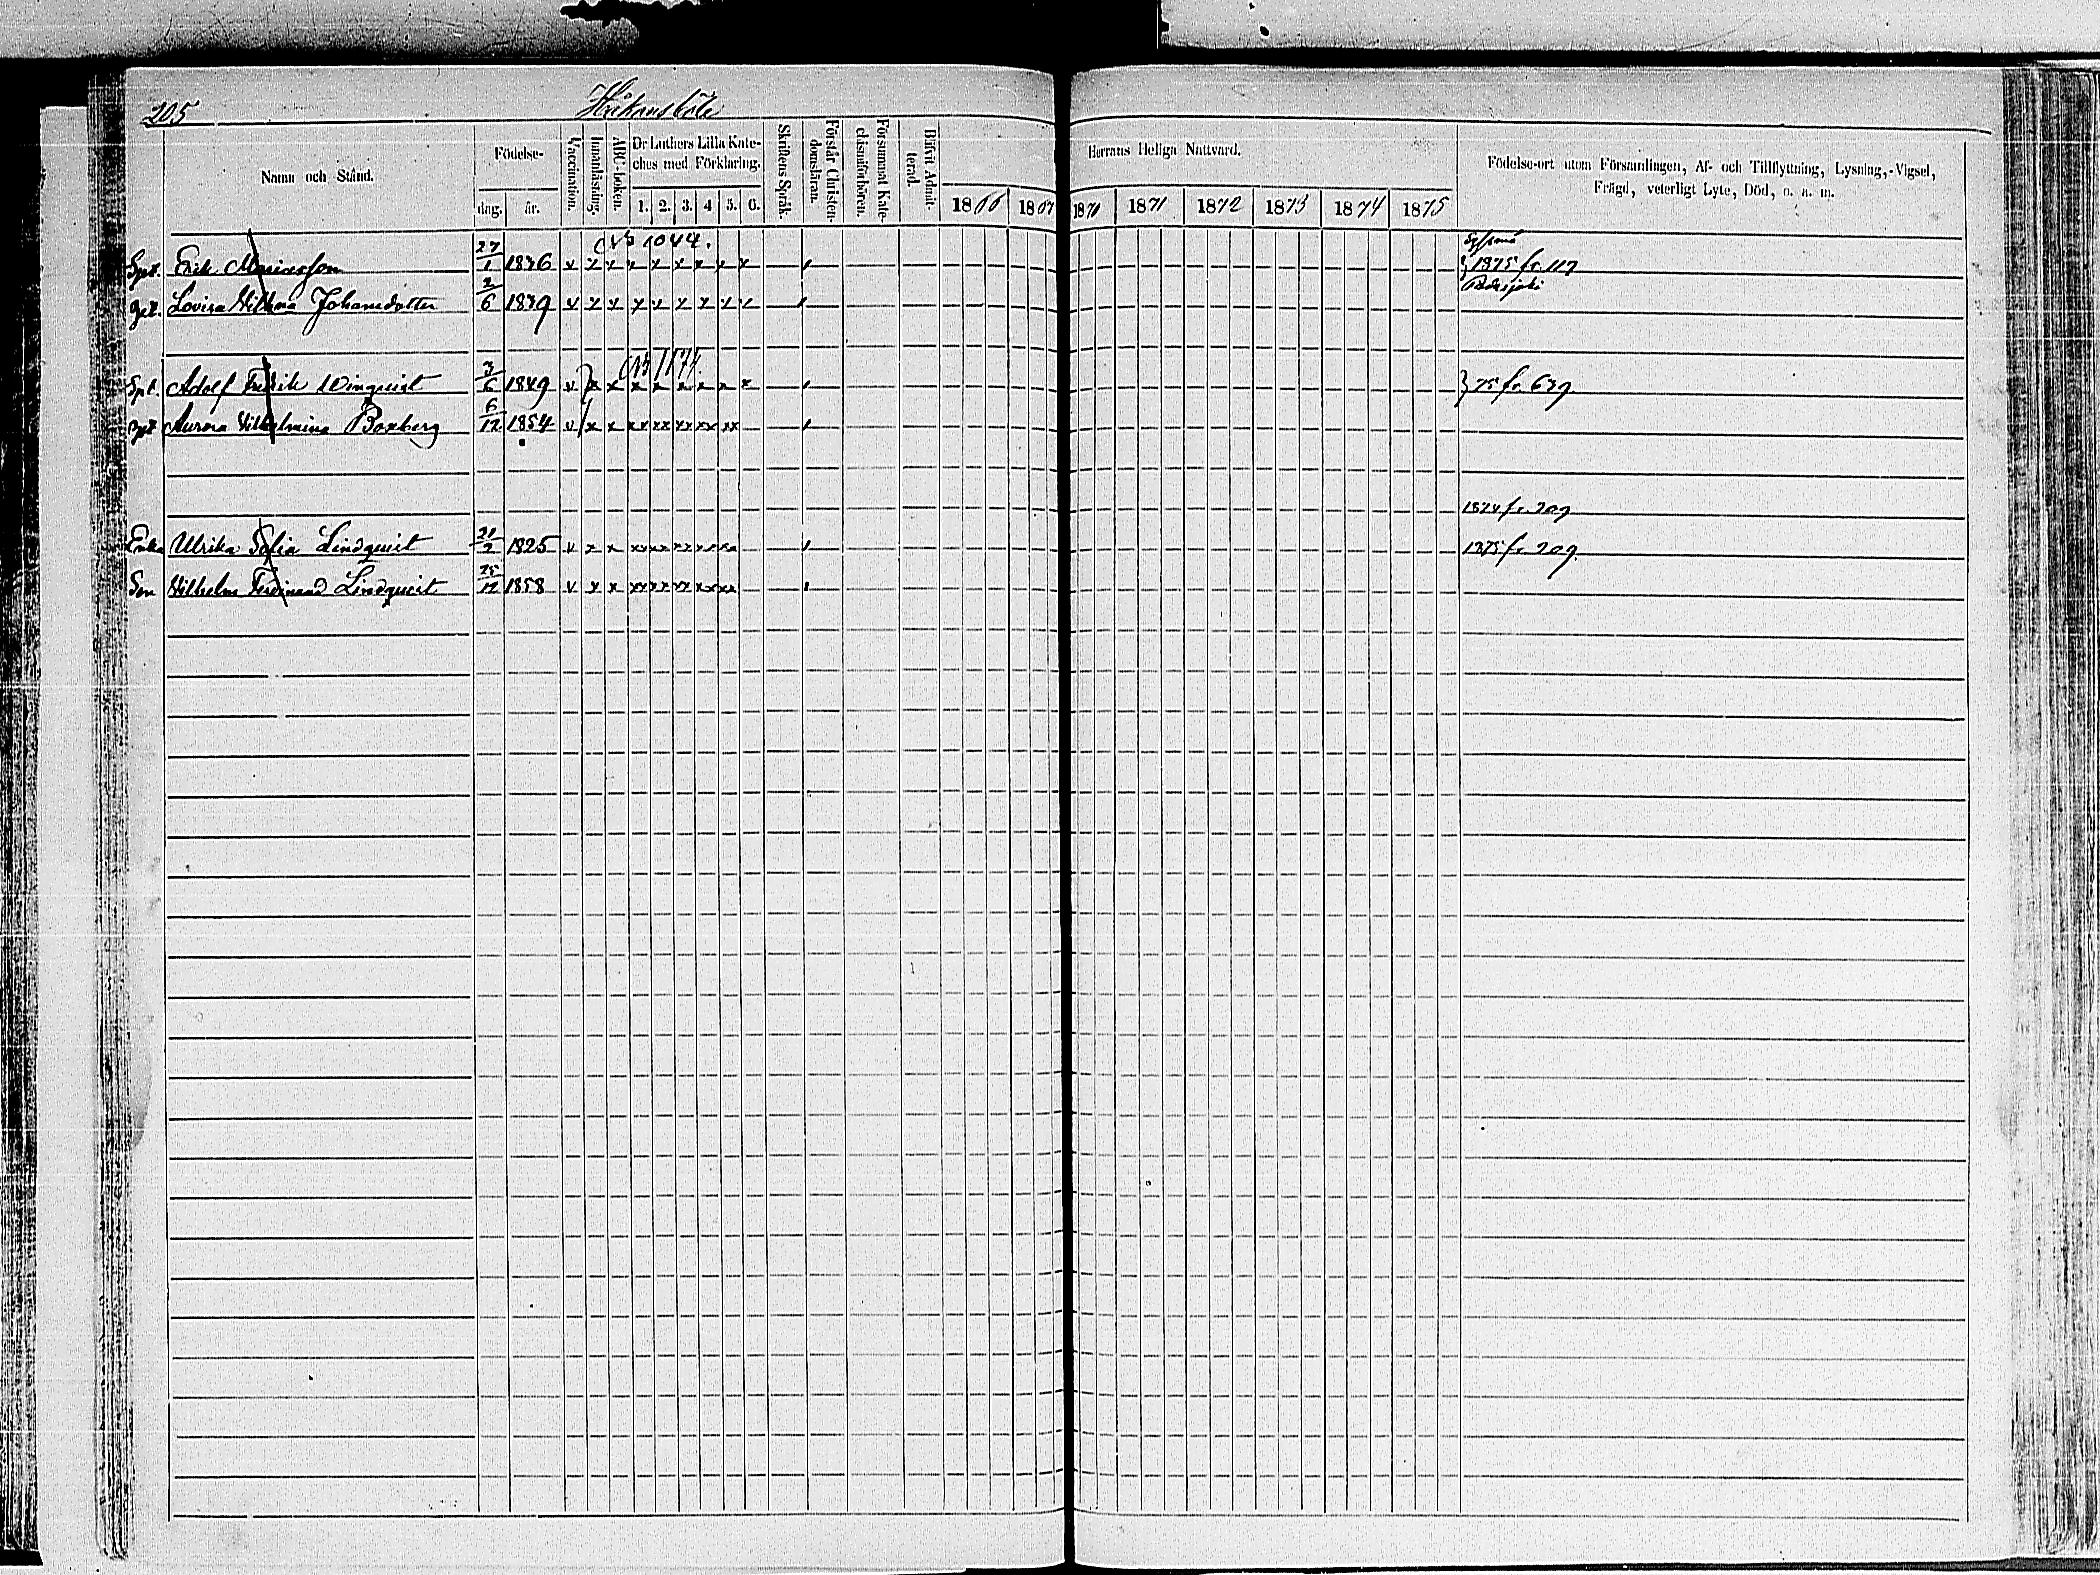 205
Håkansböle
Namn och Stånd.
Födelse-
dag.
år.
Vaccination.
Innanläsning.
ABC-boken.
Dr Luthers Lilla Kate-
ches med Förklaring.
1. 2. 3. 4 5. 6.
Skriftens Språk.
Förstår Christen-
domsläran.
Försummat Kate-
chismiförhören.
Blifvit Admit-
terad.
Herrans Heliga Nattvard.
1866 1867 1870 1871 1872 1873 1874 1875
Födelse-ort utom Församlingen, Af- och Tillflyttning, Lysning,-Vigsel,
Frägd, veterligt Lyte, Död, o. s. m.
1044.
Erik 27/1 1836 v x x x x x x x x } 1875 fr. 117
Lovisa Johansdotter 2/6 1839 v x x x x x x x x
Adolf Fredrik Winquist 3/6 1849 v x x x x x x x x } 75 fr. 639.
Aurora Vilhelmina Boxberg 6/12 1854 v x x xx xx xx xx xx
1874 fr. 209
Enka Ulrika Sofia Lindquist 21/2 1825 v x x xx xx xx xx xx 1875 fr. 209.
Son Vilhelm Ferdinand Lindquist 25/12 1858 v x x xx xx xx xx xx